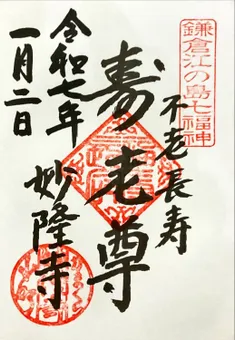 鎌倉江の島七福神
不老長寿
寿老尊
令和七年
一月二日
妙隆寺